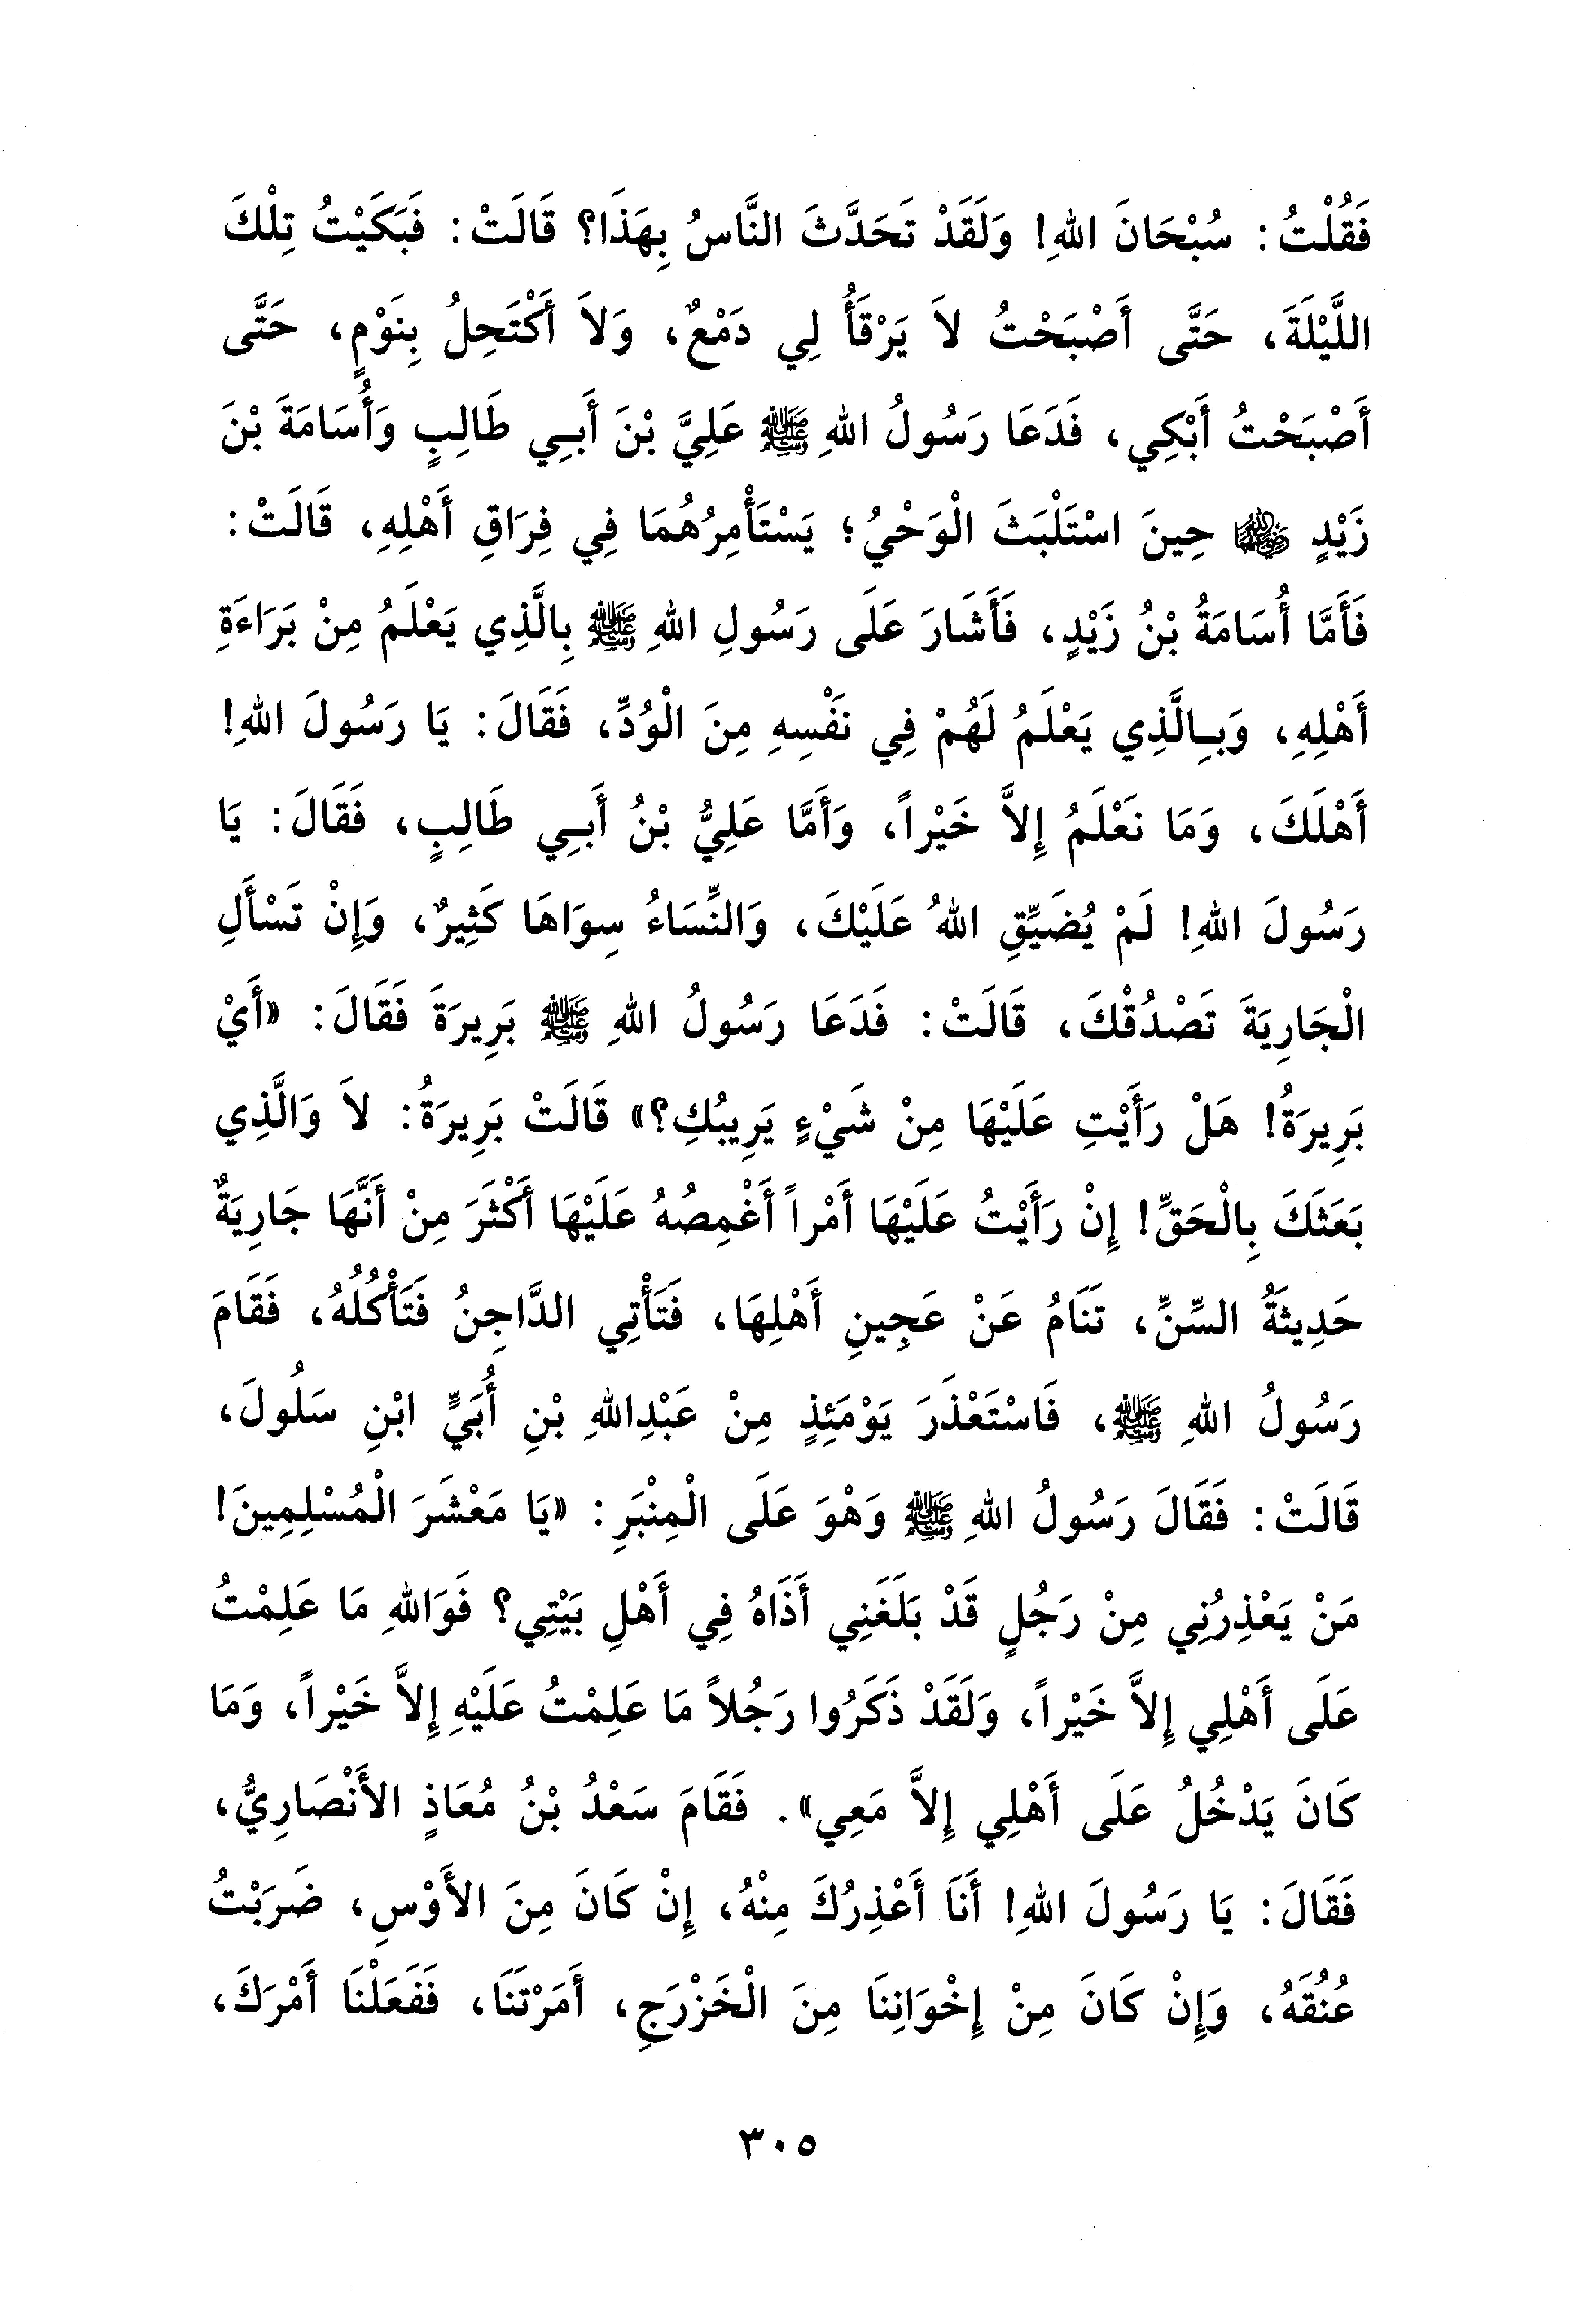 فَقُلْتُ: سُبْحَانَ اللهِ! وَلَقَدْ تَحَدَّثَ النَّاسُ بِهَذَا؟ قَالَتْ: فَبَكَيْتُ تِلْكَ
اللَّيْلَةَ، حَتَّى أَصْبَحْتُ لاَ يَرْقَأُ لِي دَمْعٌ، وَلاَ أَكْتَحِلُ بِنَوْمٍ، حَتَّى
أَصْبَحْتُ أَبْكِي، فَدَعَا رَسُولُ اللهِ ﷺ عَلِيَّ بْنَ أَبِي طَالِبٍ وَأُسَامَةَ بْنَ
زَيْدٍ ﵁ حِينَ اسْتَلْبَثَ الْوَحْيُ؛ يَسْتَأْمِرُهُمَا فِي فِرَاقِ أَهْلِهِ، قَالَتْ:
فَأَمَّا أُسَامَةُ بْنُ زَيْدٍ، فَأَشَارَ عَلَى رَسُولِ اللهِ ﷺ بِالَّذِي يَعْلَمُ مِنْ بَرَاءَةِ
أَهْلِهِ، وَبِالَّذِي يَعْلَمُ لَهُمْ فِي نَفْسِهِ مِنَ الْوُدِّ، فَقَالَ: يَا رَسُولَ اللهِ!
أَهْلَكَ، وَمَا نَعْلَمُ إِلاَّ خَيْراً، وَأَمَّا عَلِيُّ بْنُ أَبِي طَالِبٍ، فَقَالَ: يَا
رَسُولَ اللهِ! لَمْ يُضَيِّقِ اللهُ عَلَيْكَ، وَالنِّسَاءُ سِوَاهَا كَثِيرٌ، وَإِنْ تَسْأَلِ
الْجَارِيَةَ تَصْدُقْكَ، قَالَتْ: فَدَعَا رَسُولُ اللهِ ﷺ بَرِيرَةَ فَقَالَ: «أَيْ
بَرِيرَةُ! هَلْ رَأَيْتِ عَلَيْهَا مِنْ شَيْءٍ يَرِيبُكِ؟» قَالَتْ بَرِيرَةُ: لاَ وَالَّذِي
بَعَثَكَ بِالْحَقِّ! إِنْ رَأَيْتُ عَلَيْهَا أَمْراً أَغْمِصُهُ عَلَيْهَا أَكْثَرَ مِنْ أَنَّهَا جَارِيَةٌ
حَدِيثَةُ السِّنِّ، تَنَامُ عَنْ عَجِينِ أَهْلِهَا، فَتَأْتِي الدَّاجِنُ فَتَأْكُلُهُ، فَقَامَ
رَسُولُ اللهِ ﷺ، فَاسْتَعْذَرَ يَوْمَئِذٍ مِنْ عَبْدِاللهِ بْنِ أُبَيٍّ ابْنِ سَلُولَ،
قَالَتْ: فَقَالَ رَسُولُ اللهِ ﷺ وَهْوَ عَلَى الْمِنْبَرِ: «يَا مَعْشَرَ الْمُسْلِمِينَ!
مَنْ يَعْذِرُنِي مِنْ رَجُلٍ قَدْ بَلَغَنِي أَذَاهُ فِي أَهْلِ بَيْتِي؟ فَوَاللهِ مَا عَلِمْتُ
عَلَى أَهْلِي إِلاَّ خَيْراً، وَلَقَدْ ذَكَرُوا رَجُلاً مَا عَلِمْتُ عَلَيْهِ إِلاَّ خَيْراً، وَمَا
كَانَ يَدْخُلُ عَلَى أَهْلِي إِلاَّ مَعِي». فَقَامَ سَعْدُ بْنُ مُعَاذٍ الأَنْصَارِيُّ،
فَقَالَ: يَا رَسُولَ اللهِ! أَنَا أَعْذِرُكَ مِنْهُ، إِنْ كَانَ مِنَ الأَوْسِ، ضَرَبْتُ
عُنُقَهُ، وَإِنْ كَانَ مِنْ إِخْوَانِنَا مِنَ الْخَزْرَجِ، أَمَرْتَنَا، فَفَعَلْنَا أَمْرَكَ،
٣٠٥